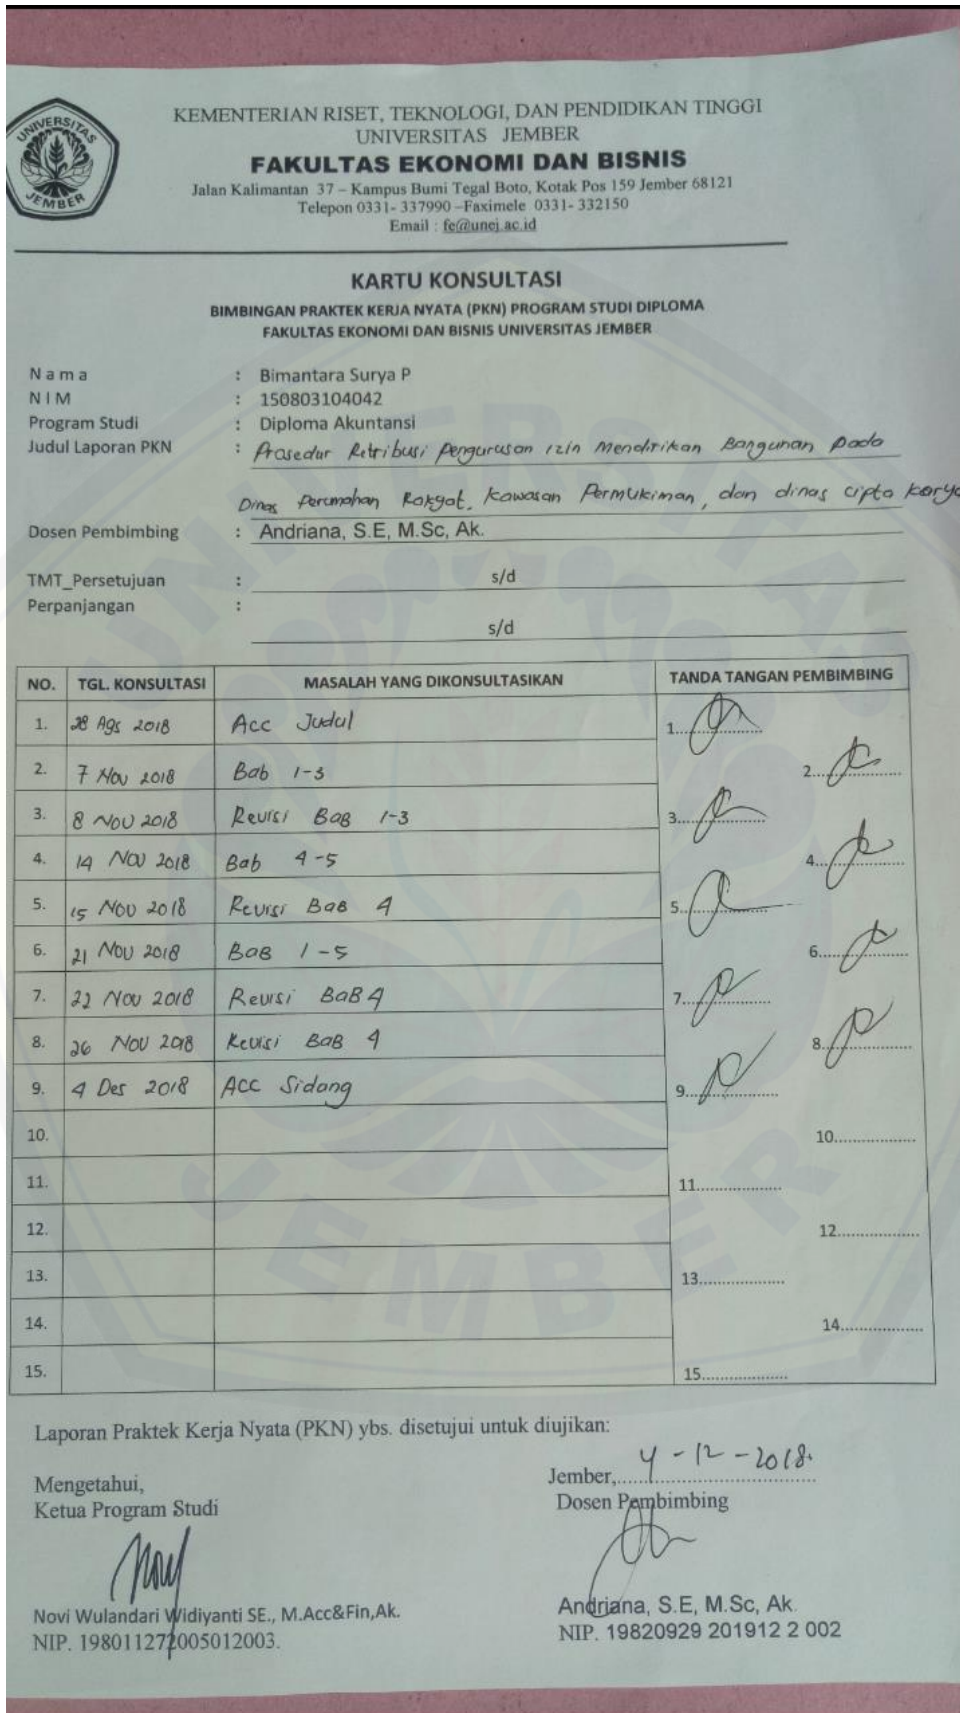 UNIVERSITAS
JEMBER
KEMENTERIAN RISET, TEKNOLOGI, DAN PENDIDIKAN TINGGI
UNIVERSITAS JEMBER
FAKULTAS EKONOMI DAN BISNIS
Jalan Kalimantan 37 – Kampus Bumi Tegal Boto, Kotak Pos 159 Jember 68121
Telepon 0331- 337990 –Faximele 0331- 332150
Email : fe@unej.ac.id
KARTU KONSULTASI
BIMBINGAN PRAKTEK KERJA NYATA (PKN) PROGRAM STUDI DIPLOMA
FAKULTAS EKONOMI DAN BISNIS UNIVERSITAS JEMBER
N a m a : Bimantara Surya P
N I M : 150803104042
Program Studi : Diploma Akuntansi
Judul Laporan PKN : Prosedur Retribusi Pengurusan izin Mendirikan Bangunan pada
Dinas Perumahan Rakyat, Kawasan Permukiman, dan dinas cipta karya
Dosen Pembimbing : Andriana, S.E, M.Sc, Ak.
TMT_Persetujuan : s/d
Perpanjangan :
s/d
NO. TGL. KONSULTASI MASALAH YANG DIKONSULTASIKAN TANDA TANGAN PEMBIMBING
1. 28 Ags 2018 Acc Judul 1..................
2. 7 Nov 2018 Bab 1-3 2..................
3. 8 NOV 2018 Revisi BaB 1-3 3..................
4. 14 NOV 2018 Bab 4-5 4..................
5. 15 NOV 2018 Revisi BaB 4 5..................
6. 21 NOV 2018 BaB 1-5 6..................
7. 22 NOV 2018 Revisi BaB 4 7..................
8. 26 NOV 2018 Revisi BaB 4 8..................
9. 4 Des 2018 ACC Sidang 9..................
10. 10..................
11. 11..................
12. 12..................
13. 13..................
14. 14..................
15. 15..................
Laporan Praktek Kerja Nyata (PKN) ybs. disetujui untuk diujikan:
Jember,..... 4 - 12 - 2018.
Mengetahui,
Dosen Pembimbing
Ketua Program Studi
Novi Wulandari Widiyanti SE., M.Acc&Fin,Ak.
NIP. 198011272005012003.
Andriana, S.E, M.Sc, Ak.
NIP. 19820929 201912 2 002
UNIVERSITAS
JEMBER